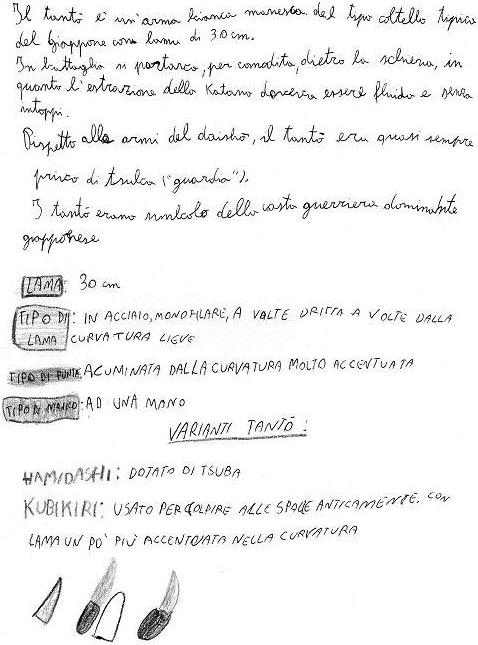 Il tantō è un'arma bianca manesca del tipo coltello tipica
del Giappone con lama di 30 cm.
In battaglia si portava, per comodità, dietro la schiena, in
quanto l'estrazione della Katana doveva essere fluida e senza
intoppi.
Rispetto alle armi del daishō, il tantō era quasi sempre
privo di tsuka ("guardia").
I tantō erano simbolo della casta guerriera dominante
giapponese
LAMA: 30 cm
TIPO DI: IN ACCIAIO, MONOFILARE, A VOLTE DRITTA A VOLTE DALLA
LAMA CURVATURA LIEVE
TIPO DI PUNTA: ACUMINATA DALLA CURVATURA MOLTO ACCENTUATA
TIPO DI MANICO: AD UNA MANO
VARIANTI TANTŌ:
HAMIDASHI: DOTATO DI TSUBA
KUBIKIRI: USATO PER COLPIRE ALLE SPALLE ANTICAMENTE. CON
LAMA UN PO' PIÙ ACCENTUATA NELLA CURVATURA